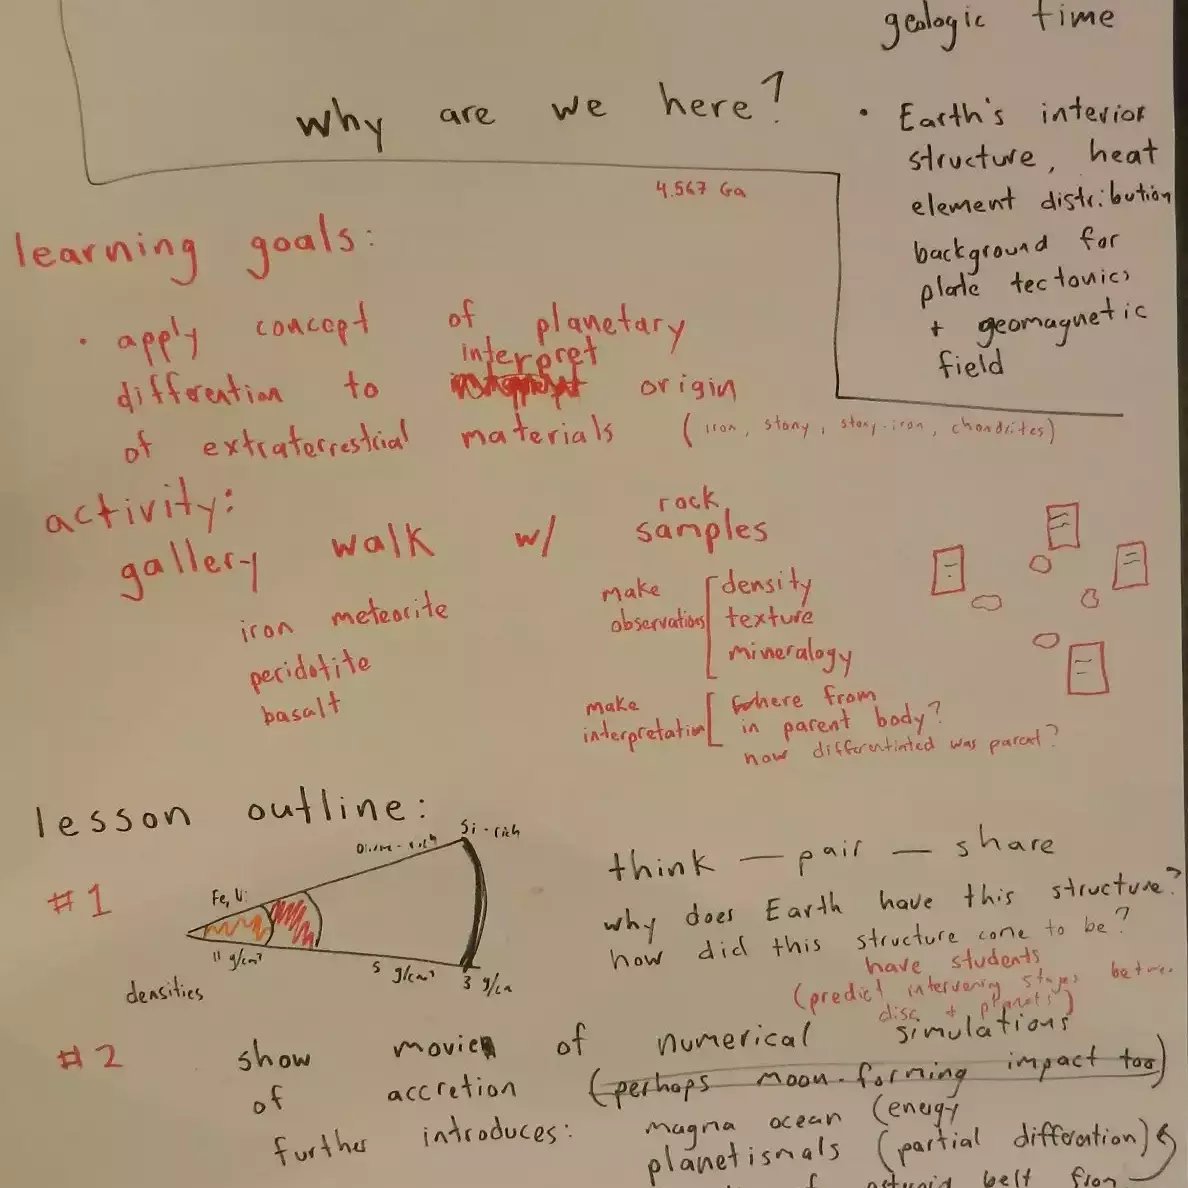 geologic time
why are we here?
• Earth's interior
structure, heat
element distribution
background for
plate tectonics
+ geomagnetic
field
4.567 Ga
learning goals:
• apply concept of planetary
interpret
differention to origin
of extraterrestrial materials (iron, stony, stony-iron, chondrites)
activity:
gallery walk w/ rock
samples
iron meteorite
peridotite
basalt
make
observations
density
texture
mineralogy
make
interpretation
where from
in parent body?
how differentiated was parent?
lesson outline:
#1
Si-rich
Fe,
11 g/cm³
5 g/cm³
3
densities
think — pair — share
why does Earth have this structure?
how did this structure come to be?
have students
(predict intervening stages
disc + planets)
#2 show movies of numerical simulations
of accretion (perhaps moon-forming impact too)
further introduces: magma ocean (energy
planetismals (partial differention)
belt from